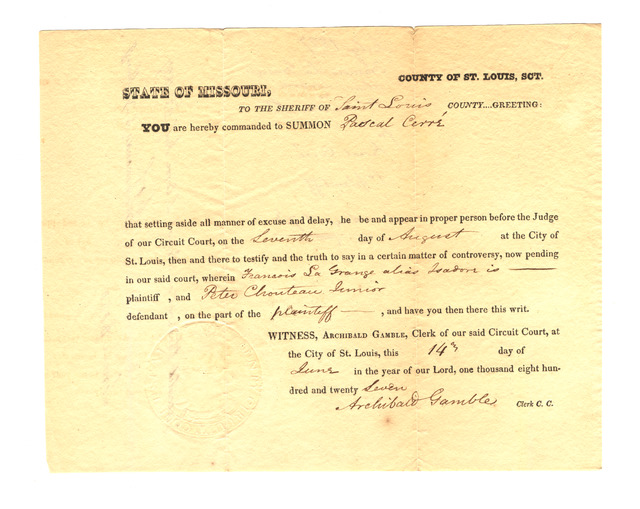 COUNTY OF ST. LOUIS, SCT.
STATE OF MISSOURI,
TO THE SHERIFF OF Saint Louis COUNTY....GREETING:
YOU are hereby commanded to SUMMON Pascal Cerré
that setting aside all manner of excuse and delay, he be and appear in proper person before the Judge
of our Circuit Court, on the Seventh day of August at the City of
St. Louis, then and there to testify and the truth to say in a certain matter of controversy, now pending
in our said court, wherein Francois La Grange alias Isadore is —
plaintiff , and Peter Chouteau Junior
defendant , on the part of the plaintiff — , and have you then there this writ.
WITNESS, ARCHIBALD GAMBLE, Clerk of our said Circuit Court, at
the City of St. Louis, this 14th day of
June in the year of our Lord, one thousand eight hun-
dred and twenty Seven
Archibald Gamble Clerk C. C.